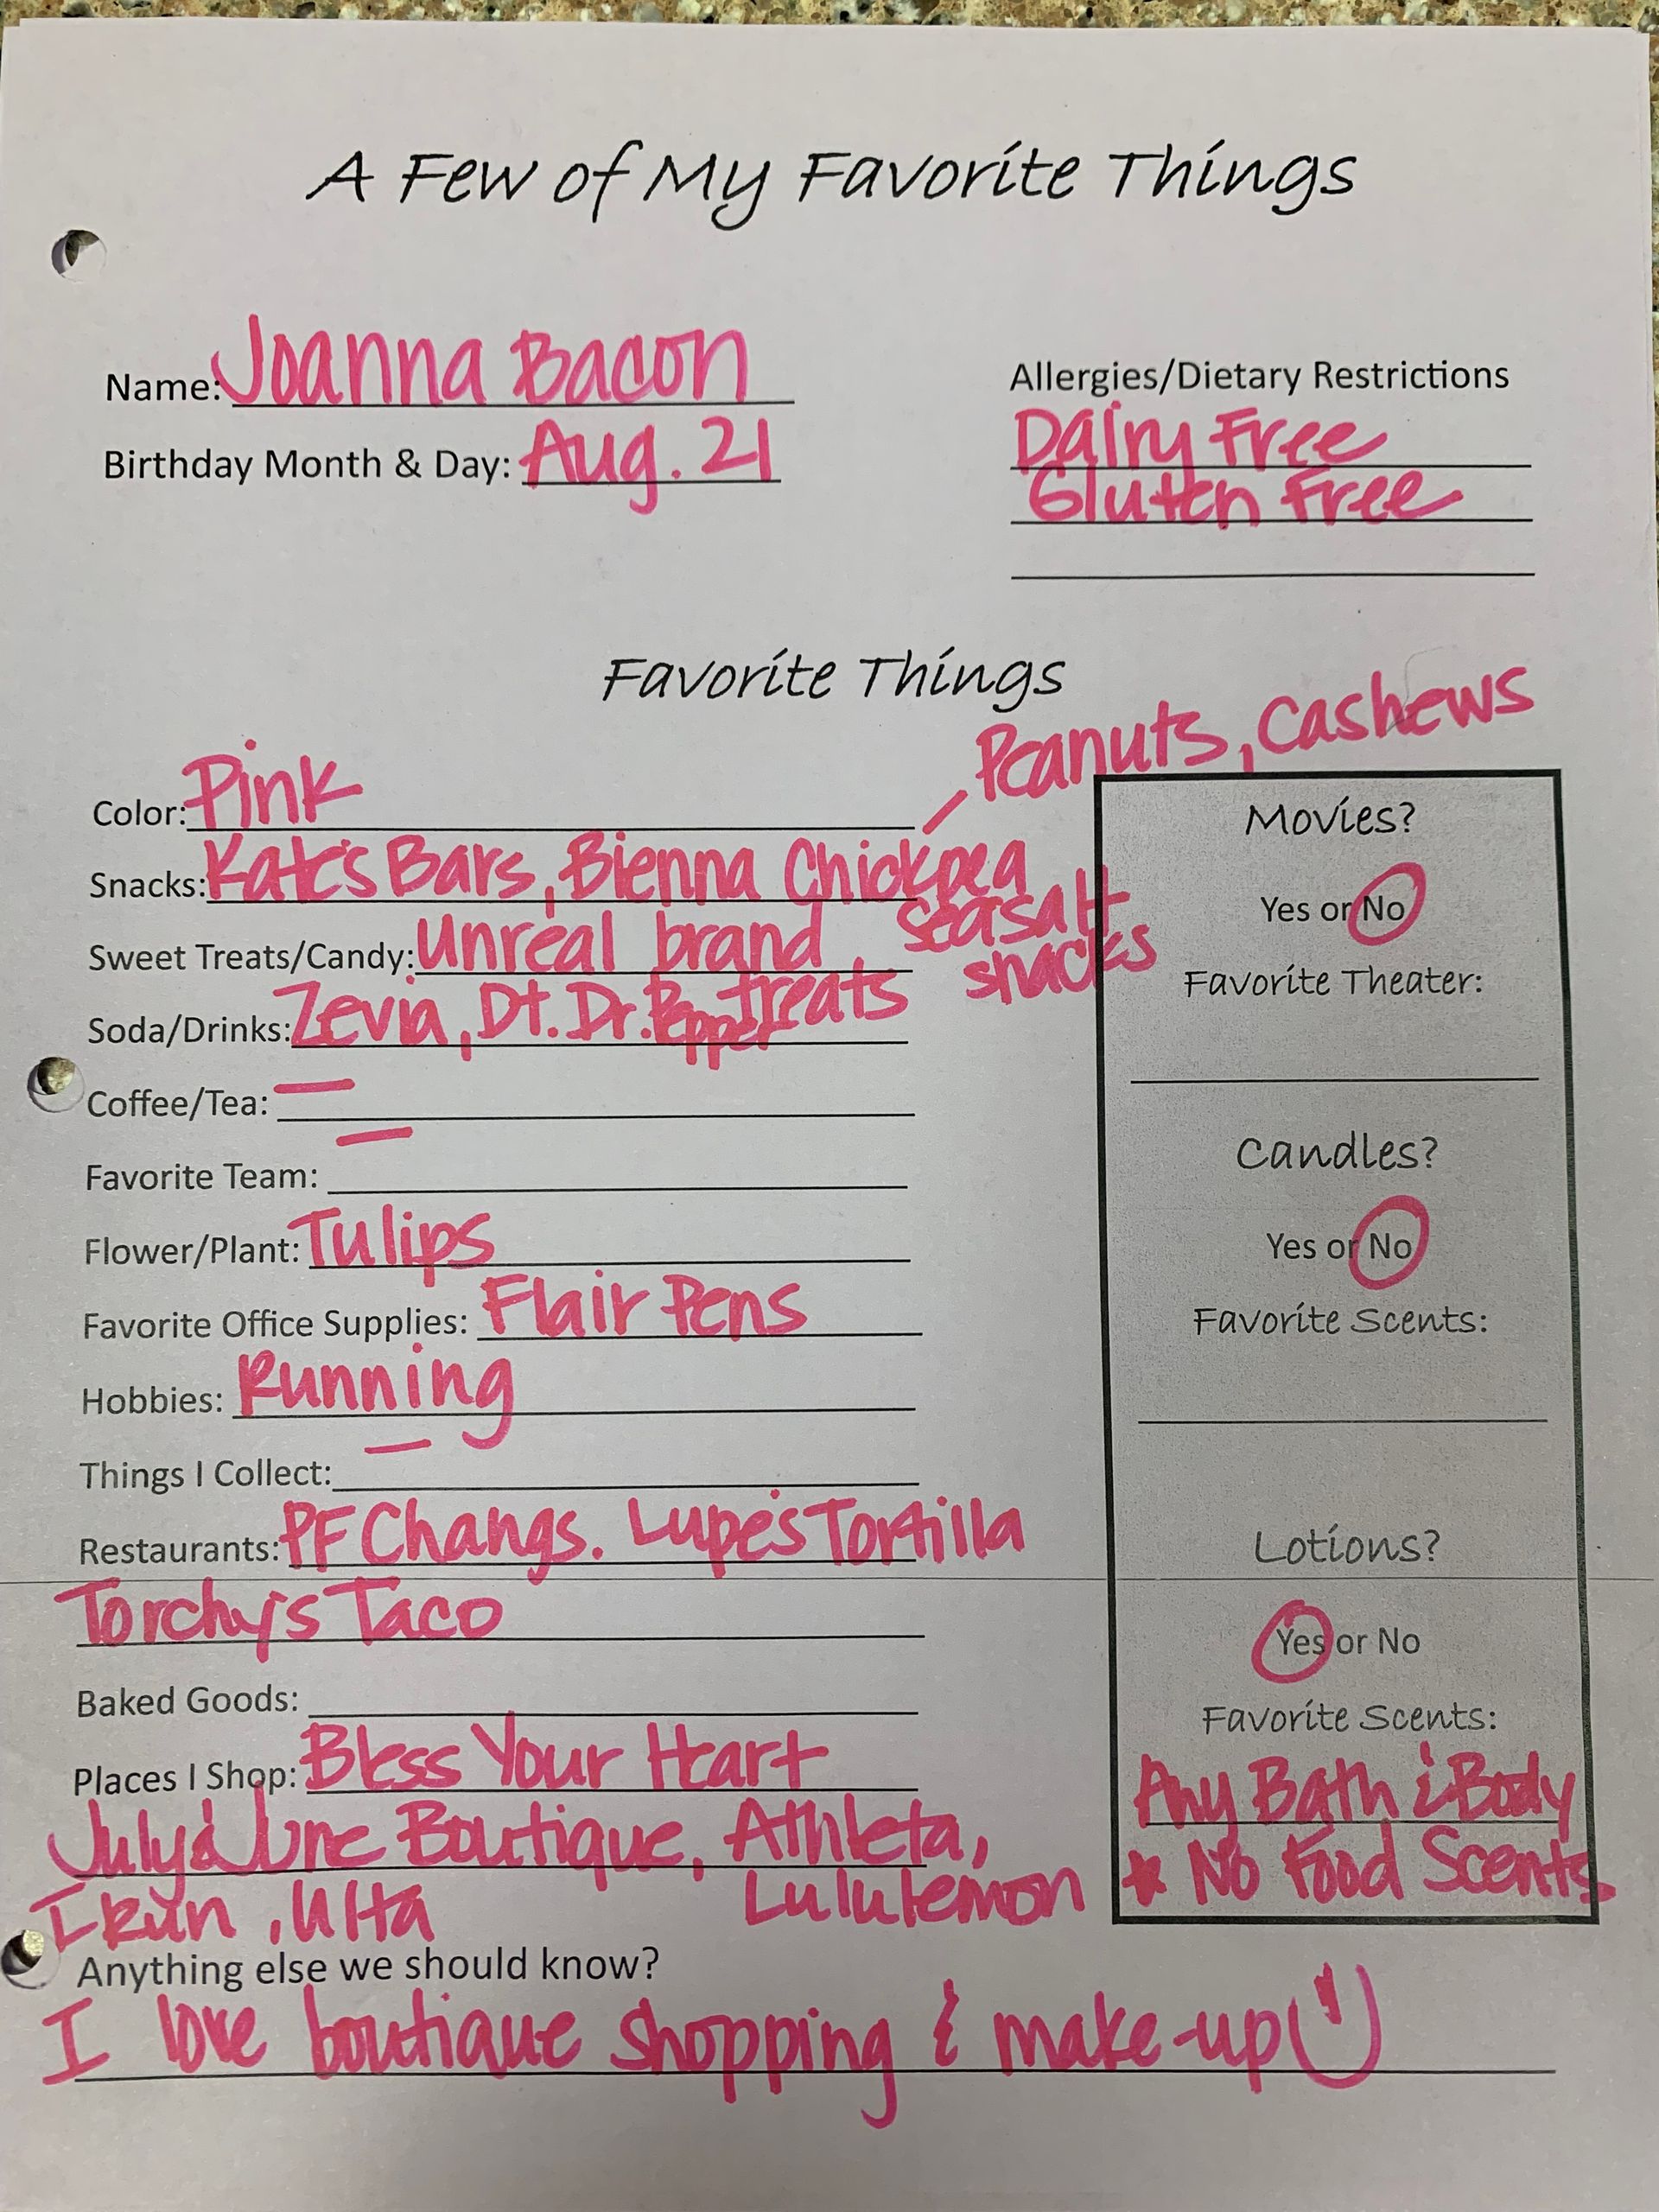 A Few of My Favorite Things
Name: Joanna Bacon
Birthday Month & Day: Aug. 21
Allergies/Dietary Restrictions
Dairy Free
Gluten Free
Favorite Things
Color: Pink
Snacks: Kate's Bars, Bienna Chickpea
seasalt
snacks
Peanuts, Cashews
Sweet Treats/Candy: Unreal brand
treats
Soda/Drinks: Zevia, Dt. Dr. Pepper
Coffee/Tea: —
Favorite Team: —
Flower/Plant: Tulips
Favorite Office Supplies: Flair Pens
Hobbies: Running
Things I Collect: —
Restaurants: PF Changs. Lupe's Tortilla
Torchy's Taco
Baked Goods:
Places I Shop: Bless Your Heart
July & June Boutique, Athleta,
I Run, Ulta Lululemon
Movies?
Yes or No
Favorite Theater:
Candles?
Yes or No
Favorite Scents:
Lotions?
Yes or No
Favorite Scents:
Any Bath & Body
* No Food Scents
Anything else we should know?
I love boutique shopping & make-up